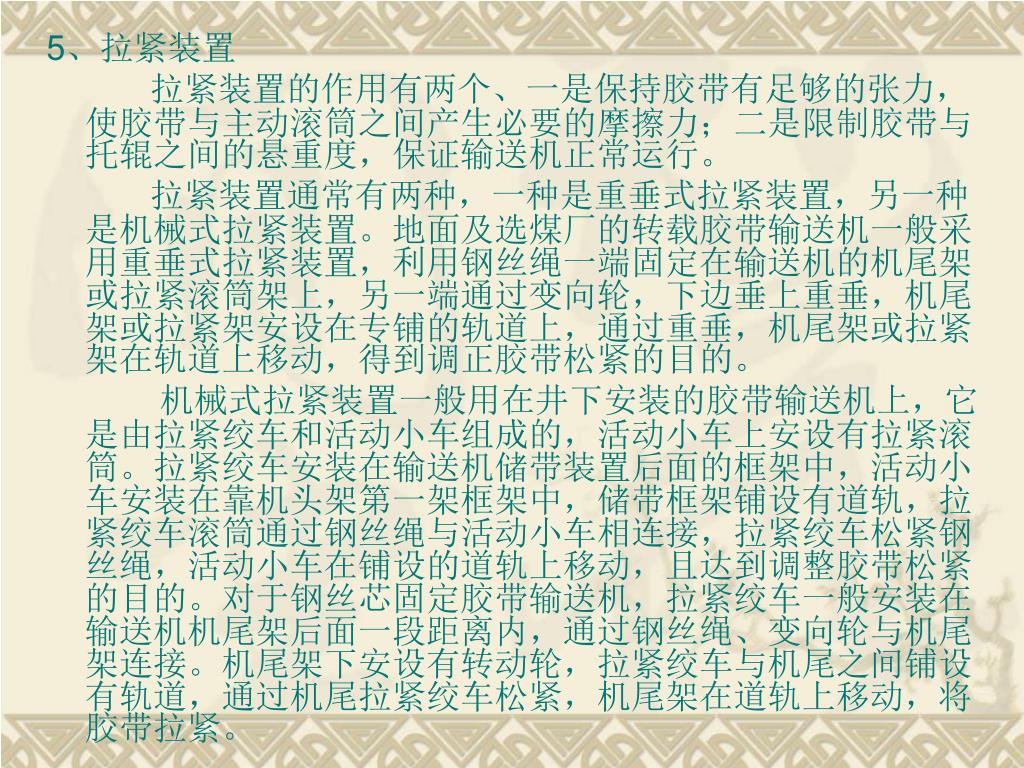 5、拉紧装置
拉紧装置的作用有两个、一是保持胶带有足够的张力，
使胶带与主动滚筒之间产生必要的摩擦力；二是限制胶带与
托辊之间的悬重度，保证输送机正常运行。
拉紧装置通常有两种，一种是重垂式拉紧装置，另一种
是机械式拉紧装置。地面及选煤厂的转载胶带输送机一般采
用重垂式拉紧装置，利用钢丝绳一端固定在输送机的机尾架
或拉紧滚筒架上，另一端通过变向轮，下边垂上重垂，机尾
架或拉紧架安设在专铺的轨道上，通过重垂，机尾架或拉紧
架在轨道上移动，得到调正胶带松紧的目的。
机械式拉紧装置一般用在井下安装的胶带输送机上，它
是由拉紧绞车和活动小车组成的，活动小车上安设有拉紧滚
筒。拉紧绞车安装在输送机储带装置后面的框架中，活动小
车安装在靠机头架第一架框架中，储带框架铺设有道轨，拉
紧绞车滚筒通过钢丝绳与活动小车相连接，拉紧绞车松紧钢
丝绳，活动小车在铺设的道轨上移动，且达到调整胶带松紧
的目的。对于钢丝芯固定胶带输送机，拉紧绞车一般安装在
输送机机尾架后面一段距离内，通过钢丝绳、变向轮与机尾
架连接。机尾架下安设有转动轮，拉紧绞车与机尾之间铺设
有轨道，通过机尾拉紧绞车松紧，机尾架在道轨上移动，将
胶带拉紧。